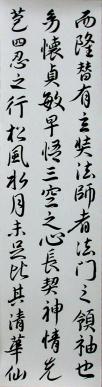 而隆替有玄奘法師者法門之領袖也
幼懷貞敏早悟三空之心長契神情先
苞四忍之行松風水月未足比其清華仙